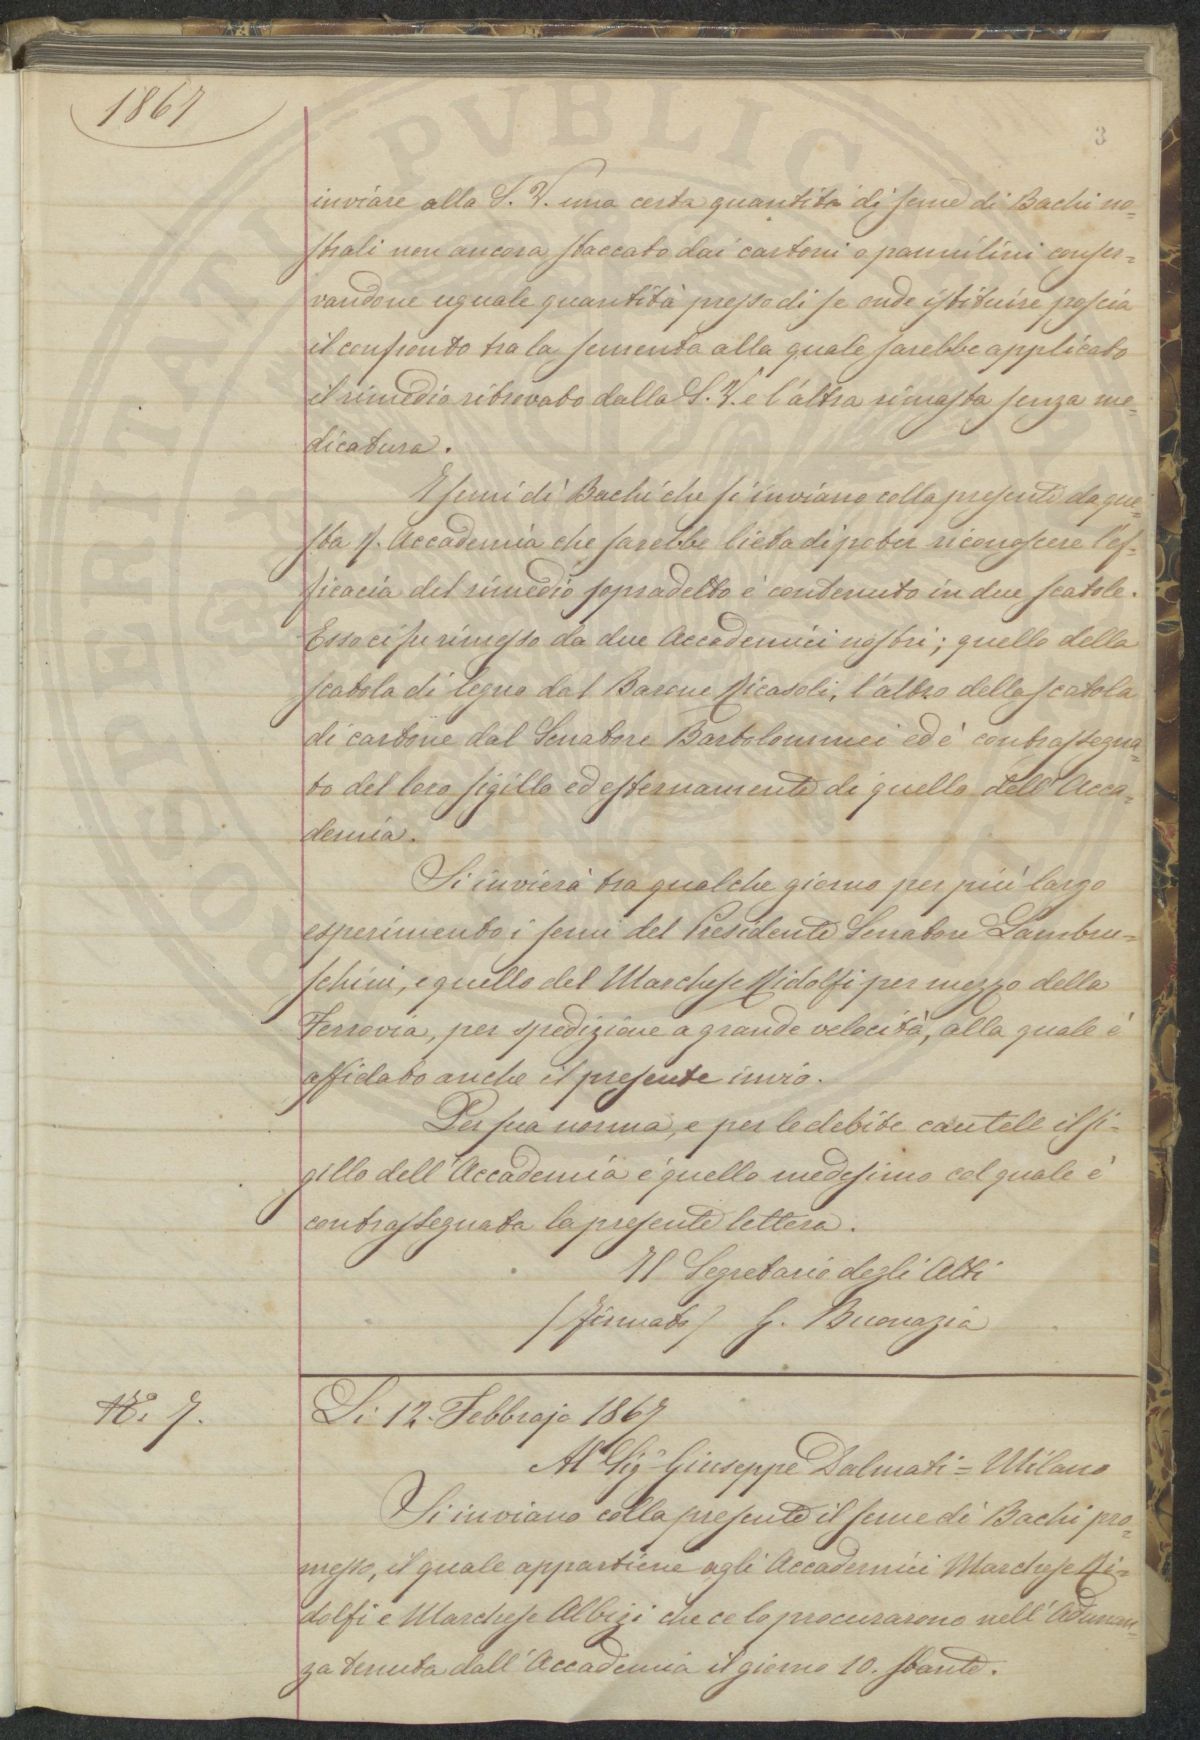 1867
3
inviare alla S. V. una certa quantità di seme di Bachi no=
strali non ancora staccato dai cartoni o pannilini conser=
vandone uguale quantità presso di se onde istituire poscia
il confronto tra la sementa alla quale sarebbe applicato
il rimedio ritrovato dalla S. V. e l'altra rimasta senza me=
dicatura.
I semi di Bachi che si inviano colla presente da que=
sta R. Accademia che sarebbe lieta di poter riconoscere l'ef=
ficacia del rimedio sopradetto è contenuto in due scatole.
Esso ci fu rimesso da due Accademici nostri; quello della
scatola di legno dal Barone Ricasoli, l'altro della scatola
di cartone dal Senatore Bartolommei ed è contrassegna=
to del loro sigillo ed esternamente di quello dell'Acca=
demia.
Si invierà tra qualche giorno per più largo
esperimento i semi del Presidente Senatore Lambru=
schini, e quello del Marchese Ridolfi per mezzo della
Ferrovia, per spedizione a grande velocità, alla quale è
affidato anche il presente invio.
Per sua norma, e per le debite cautele il si=
gillo dell'Accademia è quello medesimo col quale è
contrassegnata la presente lettera.
Il Segretario degli Atti
(firmato) G. Buonazia
N.° 7.
Li 12. Febbrajo 1867
Al Sig.r Giuseppe Dalmati = Milano
Si inviano colla presente il seme di Bachi pro=
messo, il quale appartiene agli Accademici Marchese Ri=
dolfi e Marchese Albizi che ce lo procurarono nell'Adunan=
za tenuta dall'Accademia il giorno 10. stante.